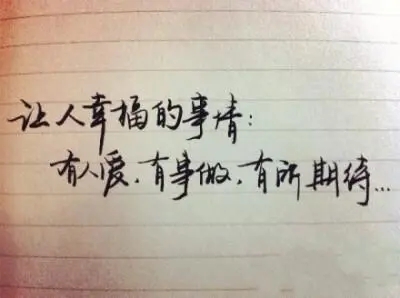 让人幸福的事情：
有人爱．有事做．有所期待...